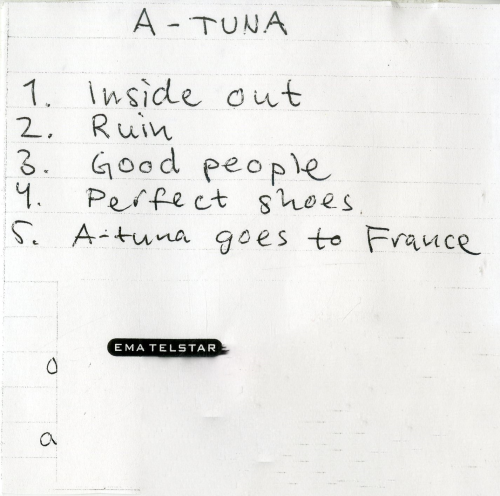 A-TUNA
1. Inside out
2. Ruin
3. Good people
4. Perfect shoes.
5. A-tuna goes to France
EMA TELSTAR
o
a